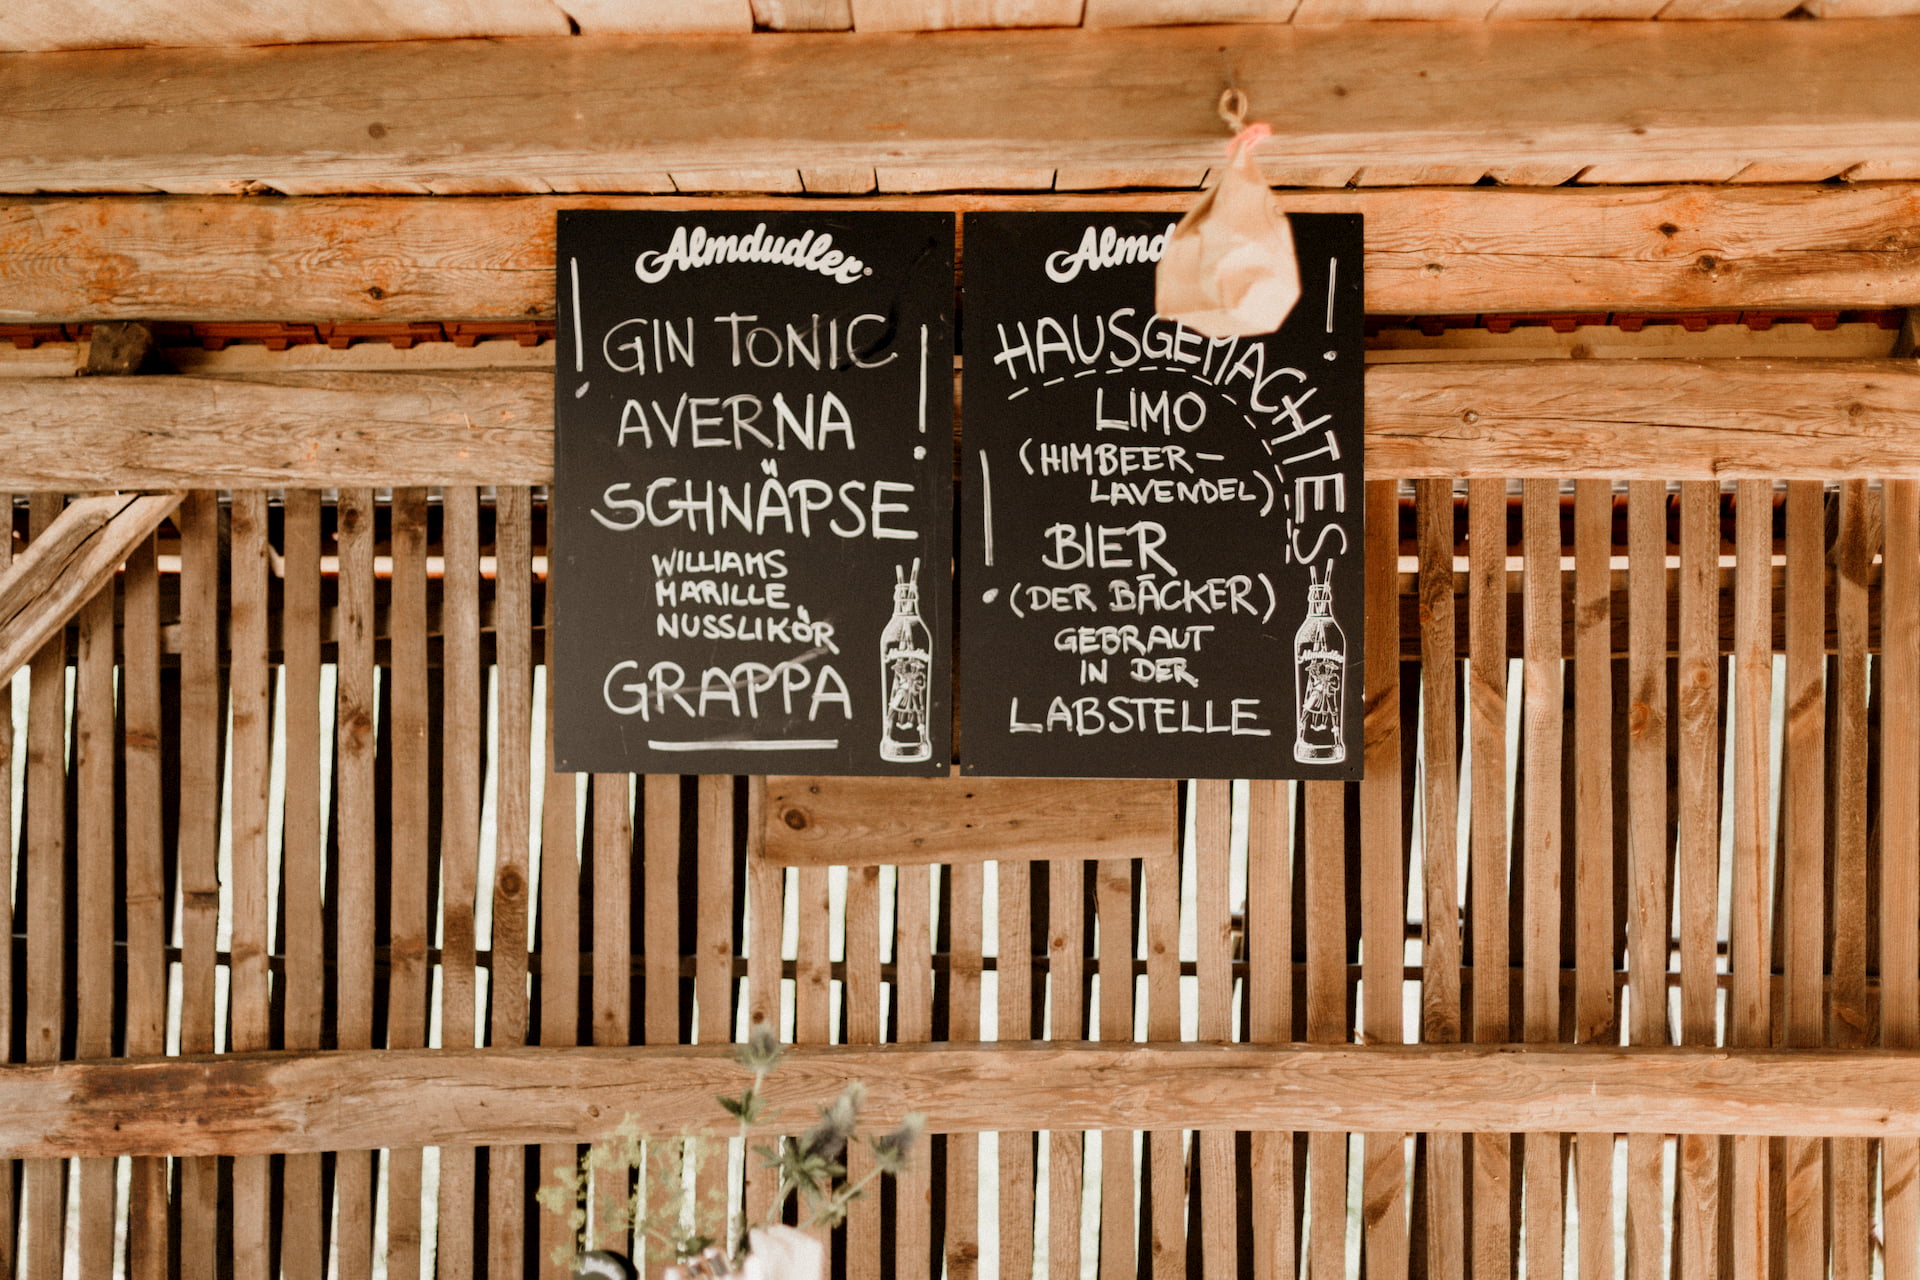 Almdudler
GIN TONIC
AVERNA
SCHNÄPSE
WILLIAMS
MARILLE
NUSSLIKÖR
GRAPPA
Almd
HAUSGEMACHTES
LIMO
(HIMBEER-
LAVENDEL)
BIER
(DER BÄCKER)
GEBRAUT
IN DER
LABSTELLE
Almdudler
Almdudler